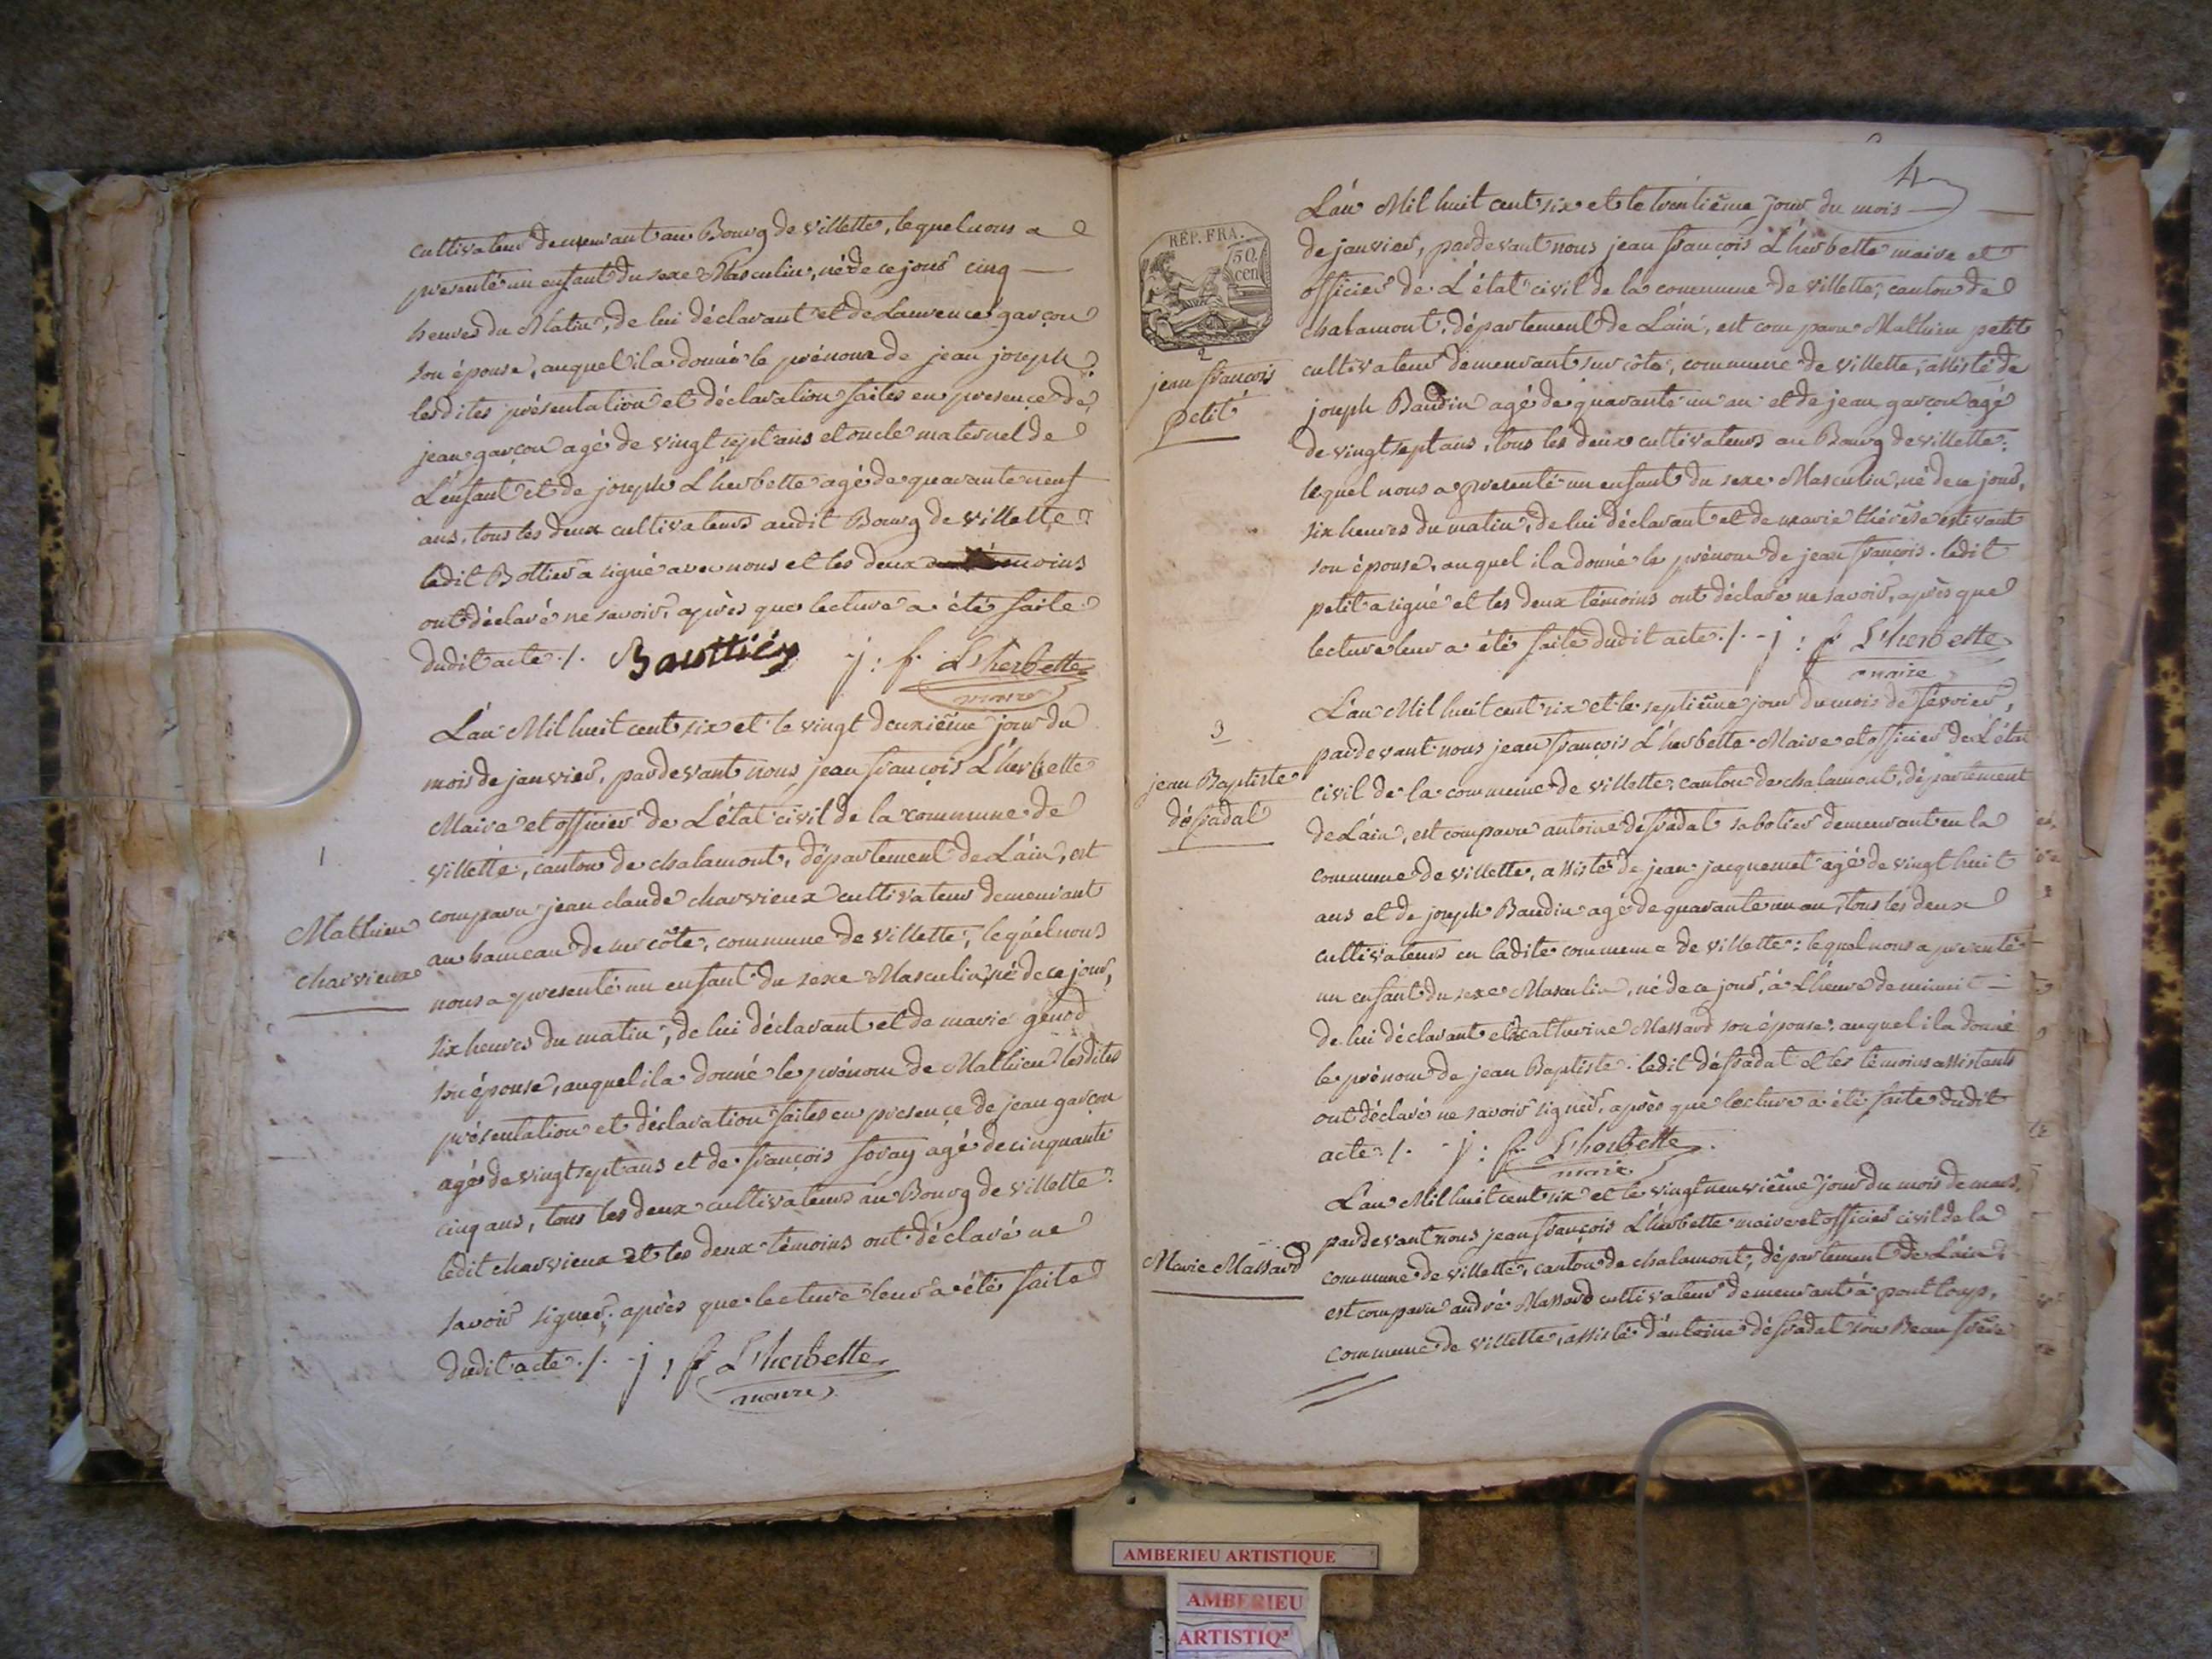 cultivateur demeurant au Bourg de Villette, lequel nous a
presenté un enfant du sexe Masculin, né de ce jour cinq
heures du Matin, de lui déclarant et de Laurence garçon
son épouse, auquel il a donné le prénom de jean joseph.
lesdites présentation et déclaration faites en presence de
jean garçon agé de vingt sept ans et oncle maternel de
L'enfant et de joseph L'herbette agé de quarante neuf
ans, tous les deux cultivateurs audit Bourg de Villette.
ledit Bottier a signé avec nous et les deux témoins
ont déclaré ne savoir, après que lecture a été faite
dudit acte ./.
j : f. L'herbette
maire
L'an Mil huit cent six et le vingt deuxième jour du
mois de janvier, pardevant nous jean françois L'herbette
Maire et officier de L'état civil de la commune de
Villette, canton de chalamont, département de L'ain, est
comparu jean claude charvieux cultivateur demeurant
au hameau de sur côte, commune de Villette, lequel nous
nous a presenté un enfant du sexe Masculin, né de ce jour,
six heures du matin, de lui déclarant et de marie genod
son épouse, auquel il a donné le prénom de Mathieu lesdites
présentation et déclaration faites en presence de jean garçon
agé de vingt sept ans et de françois foray agé de cinquante
cinq ans, tous les deux cultivateurs au Bourg de Villette.
ledit charvieux et les deux témoins ont déclaré ne
savoir signer, après que lecture leur a été faite
dudit acte ./. j : f L'herbette
maire
1
Mathieu
charvieux
4
L'an Mil huit cent six et le trentième jour du mois
de janvier, pardevant nous jean françois L'herbette maire et
officier de L'état civil de la commune de Villette, canton de
chalamont, département de L'ain, est comparu Mathieu petit
cultivateur demeurant sur côte, commune de Villette, assisté de
joseph Baudin agé de quarante un an et de jean garçon agé
de vingt sept ans, tous les deux cultivateurs au Bourg de Villette.
lequel nous a presenté un enfant du sexe Masculin, né de ce jour,
six heures du matin, de lui déclarant et de marie thérèse estivant
son épouse, auquel il a donné le prénom de jean françois. ledit
petit a signé et les deux témoins ont déclaré ne savoir, après que
lecture leur a été faite dudit acte ./. j : f L'herbette
maire
REP. FRA.
50
cen
2
jean françois
petit
L'an Mil huit cent six et le septième jour du mois de février,
pardevant nous jean françois L'herbette Maire et officier de L'état
civil de la commune de Villette, canton de chalamont, département
de L'ain, est comparu antoine défradat sabotier demeurant en la
commune de Villette, assisté de jean jacquemet agé de vingt huit
ans et de joseph Baudin agé de quarante un an, tous les deux
cultivateurs en ladite commune de Villette : lequel nous a presenté
un enfant du sexe Masculin, né de ce jour, à L'heure de minuit
de lui déclarant et de catherine Massard son épouse, auquel il a donné
le prénom de jean Baptiste. ledit défradat et les témoins assistants
ont déclaré ne savoir signer, après que lecture a été faite dudit
acte ./. j : f L'herbette
maire
3
jean Baptiste
défradat
L'an Mil huit cent six et le vingt neuvième jour du mois de mars,
pardevant nous jean françois L'herbette maire et officier civil de la
commune de Villette, canton de chalamont, département de L'ain,
est comparu andré Massard cultivateur demeurant à pont loup,
commune de Villette, assisté d'antoine défradat son Beau frère
Marie Massard
AMBERIEU ARTISTIQUE
AMBERIEU
ARTISTIQ